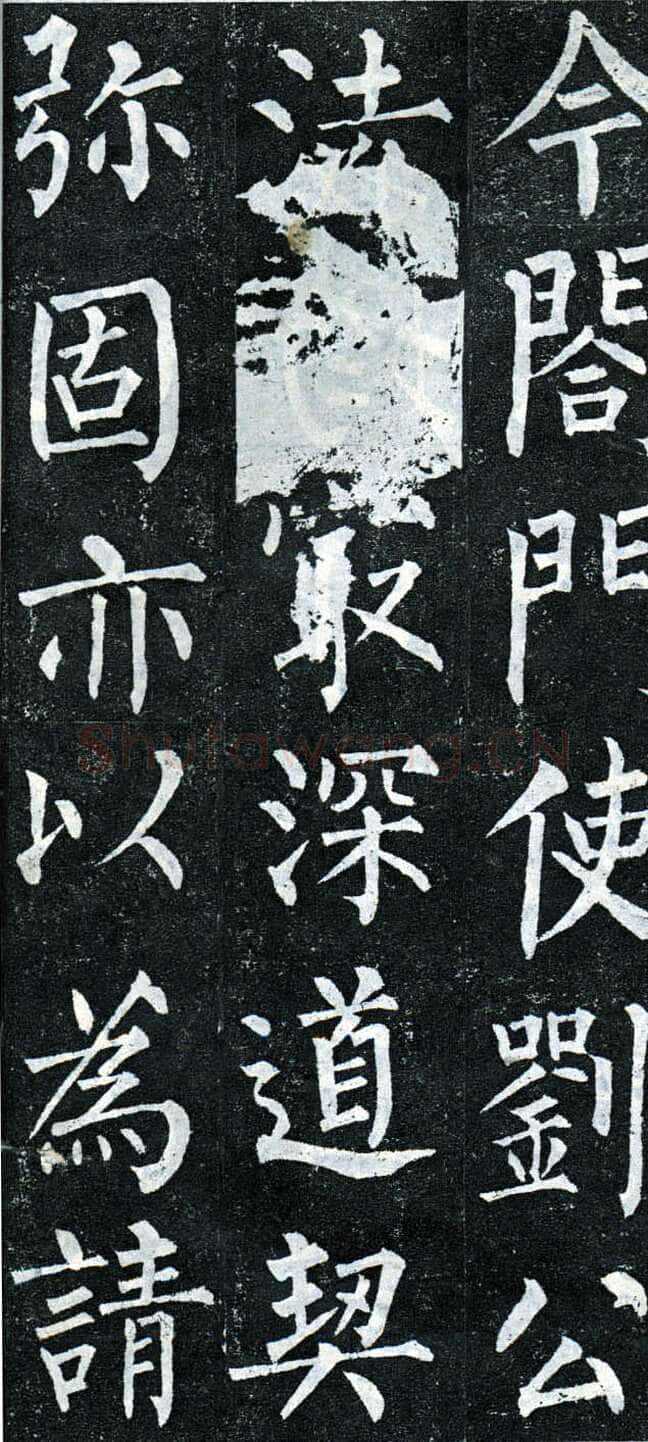 今閤門使劉公
法冣深道契
弥固亦以為請
Shufawang.CN